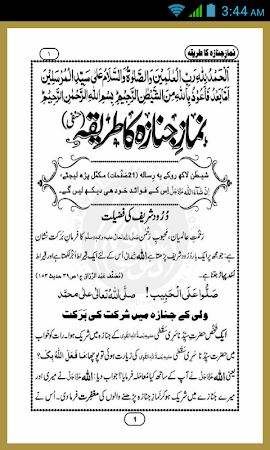 3:44 AM
۱ نمازِ جنازہ کا طریقہ
اَلْحَمْدُ لِلّٰہِ رَبِّ الْعٰلَمِیْنَ وَالصَّلٰوۃُ وَالسَّلَامُ عَلٰی سَیِّدِ الْمُرْسَلِیْنَ
اَمَّا بَعْدُ فَاَعُوْذُ بِاللّٰہِ مِنَ الشَّیْطٰنِ الرَّجِیْمِ بِسْمِ اللّٰہِ الرَّحْمٰنِ الرَّحِیْمِ
نمازِ جنازہ کا طریقہ (حنفی)
شیطٰن لاکھ روکے یہ رسالہ (21صفحات) مکمّل پڑھ لیجئے
اِنْ شَآءَ اللّٰہ عَزَّوَجَلَّ اِس کے فوائد خود ہی دیکھ لیں گے۔
دُرُود شریف کی فضیلت
رَحْمتِ عالمیان، محبوبِ رحمٰن صلی اللہ تعالٰی علیہ واٰلہ وسلم کا فرمانِ بَرَکت نشان
ہے: جو مجھ پر ایک بار دُرود شریف پڑھتا ہے اللہ تعالٰی اُس کیلئے ایک قیراط اَجر لکھتا ہے اور قیراط
اُحُد پہاڑ جتنا ہے۔ (مُصَنَّف عَبْدُ الرَّزّاق ج۱ ص۳۹ حدیث ۱۵۳)
صَلُّوْا عَلَی الْحَبِیْب! صلَّی اللّٰہُ تعالٰی علٰی محمَّد
ولی کے جنازے میں شرکت کی بَرَکت
ایک شخص حضرتِ سیِّدُنا سَری سَقَطی کے جنازے میں شریک ہوا۔ رات کو خواب
میں حضرتِ سیِّدُنا سَری سَقَطی کی زیارت ہوئی تو پوچھا: مَا فَعَلَ اللّٰہُ بِکَ؟
یعنی اللہ عَزَّوَجَلَّ نے آپ کے ساتھ کیا مُعامَلہ فرمایا؟ جواب دیا: اللہ عَزَّوَجَلَّ نے میری اور
میرے جنازے میں شریک ہو کر نَمازِ جنازہ پڑھنے والوں کی مغفرت فرما دی۔ اُس نے
1